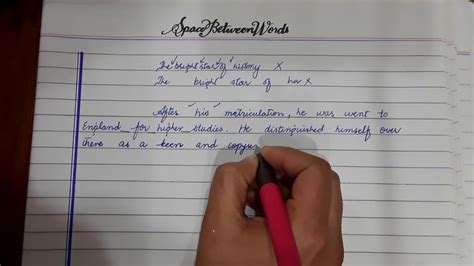 Space Between Words
The bright star of history X
The bright star of her X
After his matriculation, he was went to
England for higher studies. He distinguished himself over
there as a keen and